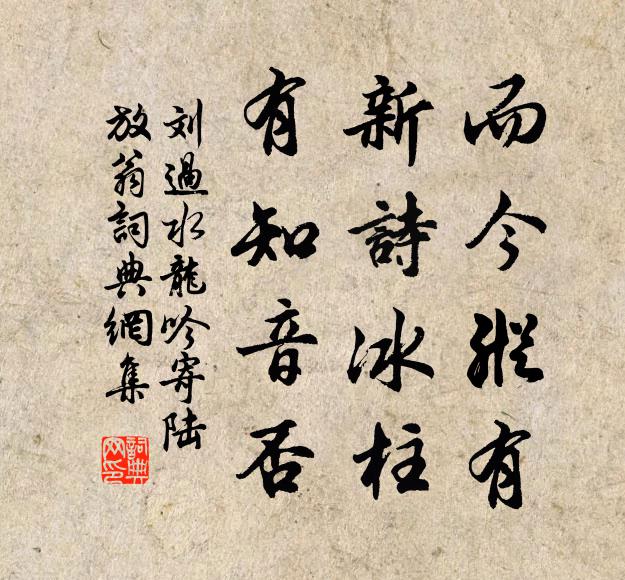 而今縱有
新詩冰柱
有知音否
刘過水龍吟寄陸
放翁詞典網集
詞典
网印